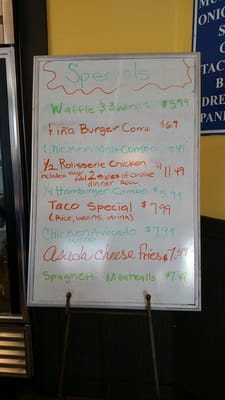 Specials
Waffle & 3 Wings $5.99
Fina Burger Combo $6.9
Chicken Melt Combo 7.49
1/2 Rotisserie Chicken $11.49
includes w/ 2 sides of choice
dinner roll
1/4 Hamburger Combo $5.99
Taco Special $7.99
(Rice, beans, drink)
Chicken Avocado $7.99
Asada Cheese Fries $7.49
Spaghetti Meatballs $7.49
ONION